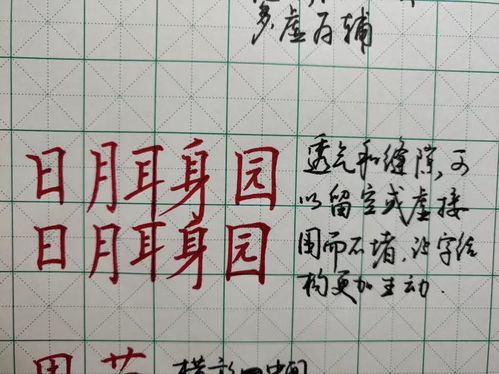 多虚存辅
日月耳身园
日月耳身园
透气和缝隙,可
以留空或虚接
围而不堵,让字结
构更加生动.
中间